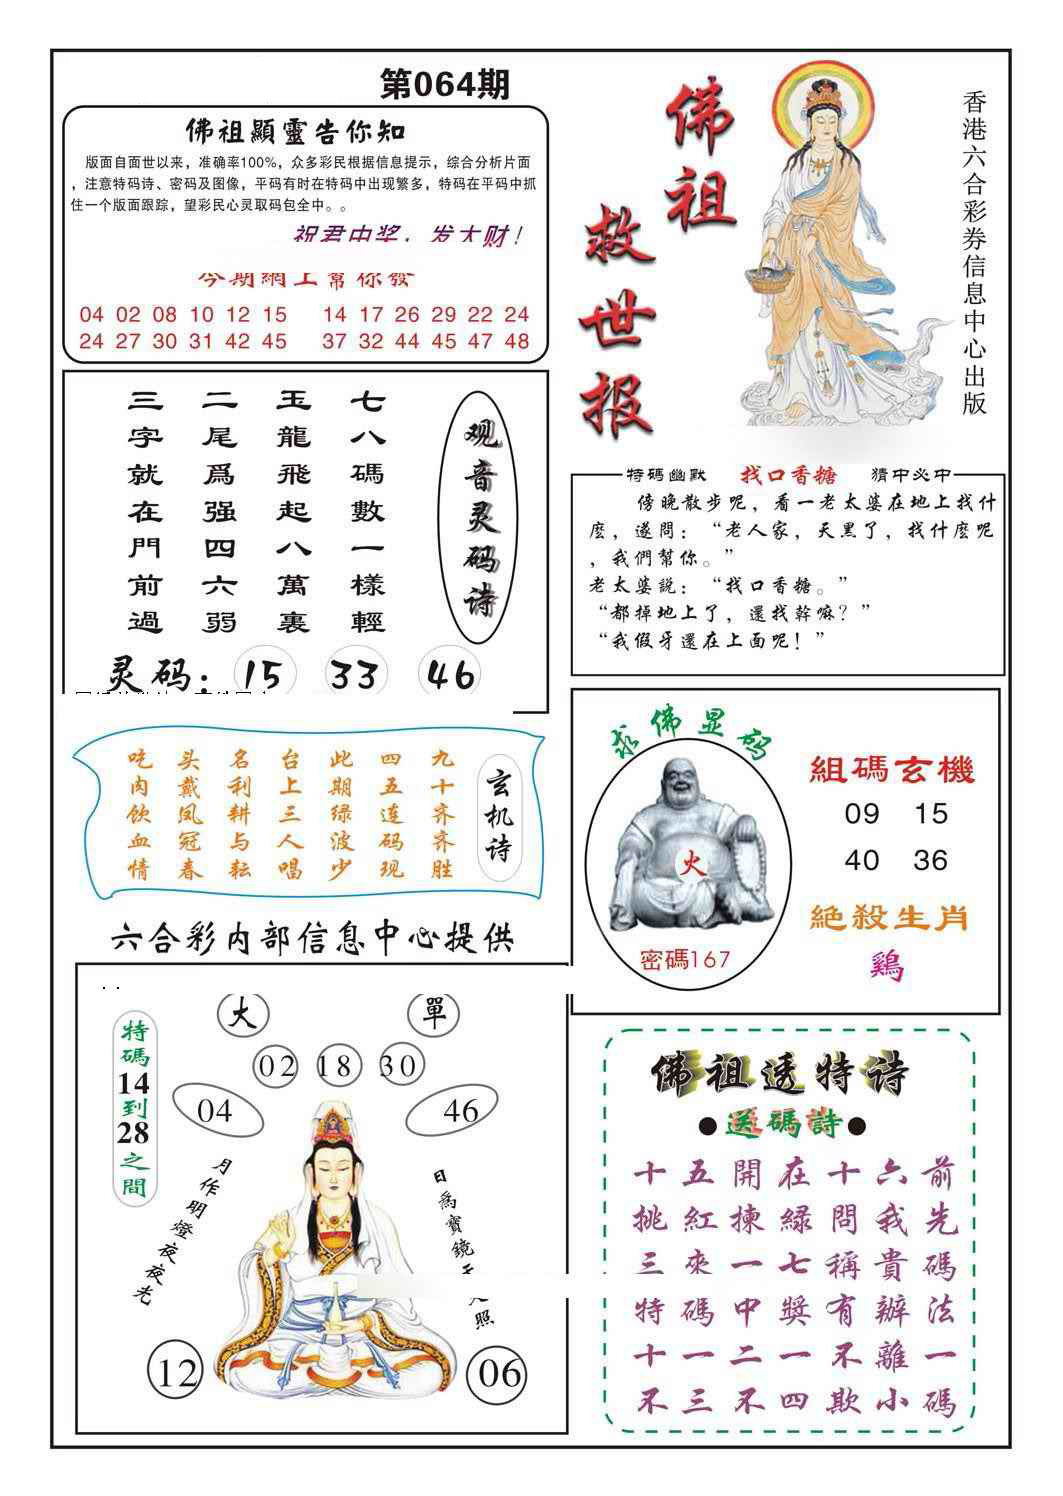 第064期
佛祖顯靈告你知
版面自面世以来，准确率100%，众多彩民根据信息提示，综合分析片面
，注意特码诗、密码及图像，平码有时在特码中出现繁多，特码在平码中抓
住一个版面跟踪，望彩民心灵取码包全中。。
祝君中奖，发大财！
今期網上幫你發
04 02 08 10 12 15 14 17 26 29 22 24
24 27 30 31 42 45 37 32 44 45 47 48
佛祖
救世报
香港六合彩券信息中心出版
七八碼數一樣輕
玉龍飛起八萬裏
二尾爲强四六弱
三字就在門前過
观音灵码诗
灵码：15 33 46
特碼幽默 找口香糖 猜中必中
傍晚散步呢，看一老太婆在地上找什
麽，遂問：“老人家，天黑了，找什麽呢
，我們幫你。”
老太婆説：“找口香糖。”
“都掉地上了，還找幹嘛？”
“我假牙還在上面呢！”
玄机诗
九十齐齐胜
四五连码现
此期绿波少
台上三人唱
名利耕与耘
头戴凤冠春
吃肉饮血情
求佛显码
火
密碼167
組碼玄機
09 15
40 36
絕殺生肖
鷄
六合彩内部信息中心提供
特碼14到28之間
大 單
02 18 30
04 46
月作明燈夜夜光
日爲寶鏡
照
12 06
佛祖透特诗
●送碼詩●
十五開在十六前
挑紅揀綠問我先
三來一七稱貴碼
特碼中獎有辦法
十一二一不離一
不三不四欺小碼